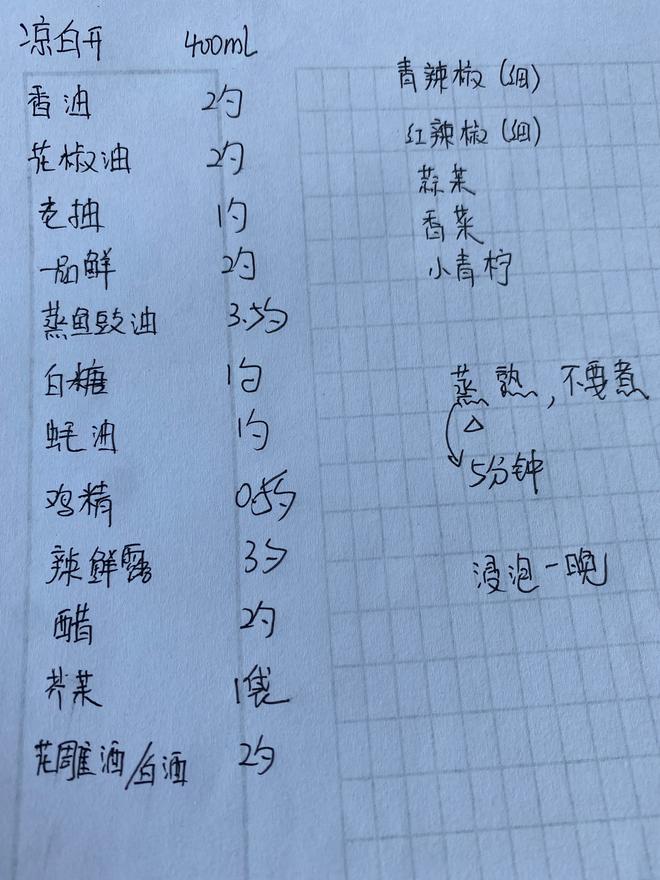 凉白开 400mL
香油 2勺
花椒油 2勺
老抽 1勺
一品鲜 2勺
蒸鱼豉油 3.5勺
白糖 1勺
蚝油 1勺
鸡精 0.5勺
辣鲜露 3勺
醋 2勺
芥菜 1袋
花雕酒/白酒 2勺
青辣椒（细）
红辣椒（细）
蒜菜
香菜
小青柠
蒸熟，不要煮
5分钟
浸泡一晚